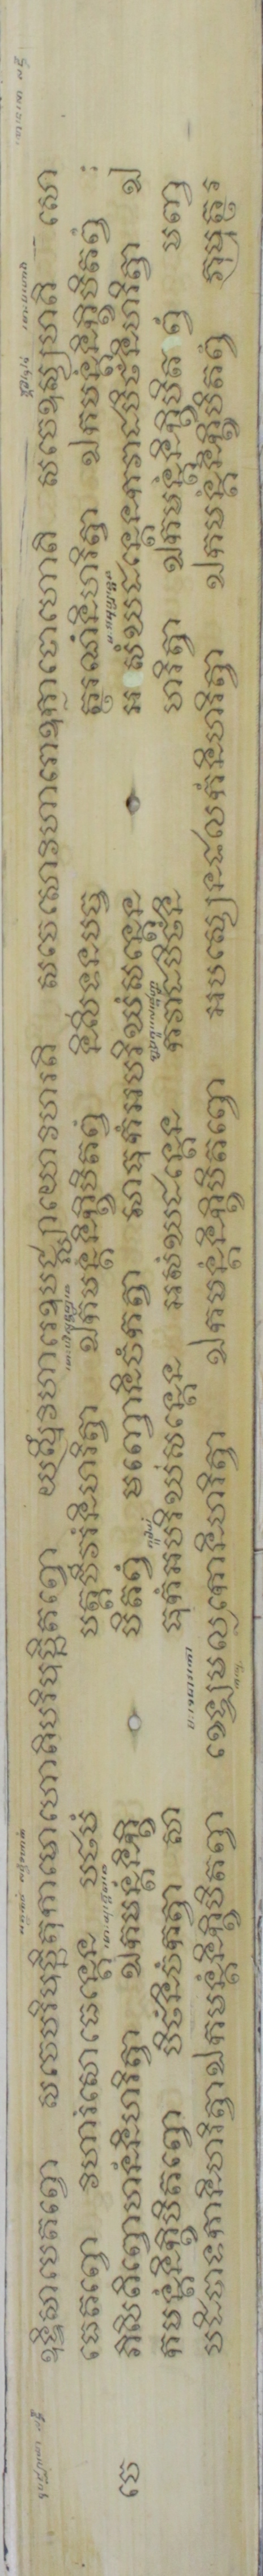 ឧទ្ទិសាបេតព្វោ សចេបរិបុច្ឆិតុកាមោហោតិបរិបុច្ឆិតព្វោ យស្មឹវិហារេឧបជ្ឈាយោវិហរតិ សចេសោវិហារោឧក្លាបោហោតិ សចេឧស្សហតិ សោ
ធេតព្វោ វិហារំសោធេន្តេន បឋមំ បត្តចីវរំនីហរិត្វា ឯកមន្តំនិក្ខិបិតព្វំ និសីទនបច្ច ត្ថរណំនីហរិត្វា ឯកមន្តំនិក្ខិបិតព្វំ
ចេ ភិសិពិព្វោហនំនីហរិត្វា ឯកមន្តំនិក្ខិ បិតព្វំ មញ្ចោនីចំកត្វា សាធុកំអបរិឃំសន្តេន អ សំឃដន្តេនកវាដបិដំនីហរិត្វា ឯ
កមន្តំនិក្ខិបិតព្វោ បីឋំនីចំកត្វា សា ធុកំអបរិឃំសន្តេន អសំឃដន្តេន កវាដបិដំនី ហរិត្វា ឯកមន្តំនិក្ខិបិតព្វំ មញ្ច
បដិបាទកានីហរិត្វាឯកមន្តំនិក្ខិបិតព្វា ខេឡមល្លកោនីហរិត្វា ឯកមន្តំនិក្ខិបិតព្វោ អបស្សេនផលកំនីហរិត្វា ឯកមន្តំនិក្ខិបិតព្វំ ភុម្មត្ថរ